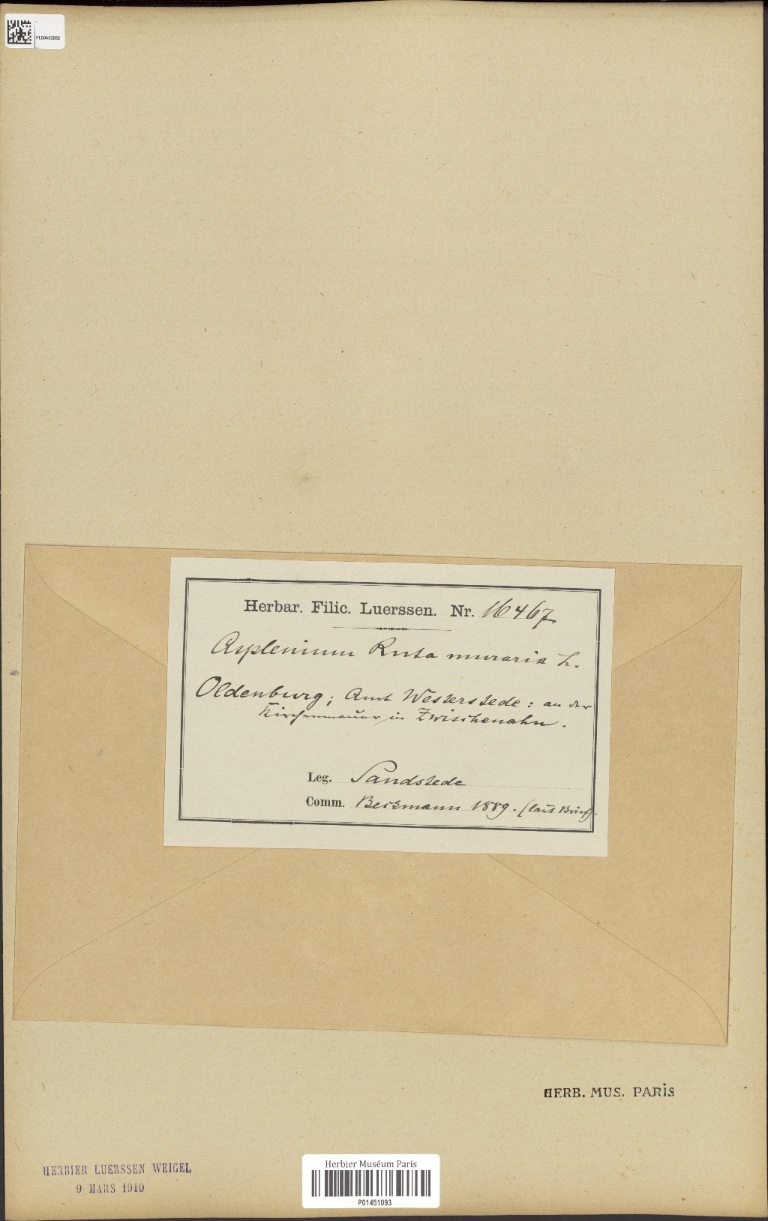 Herbar. Filic. Luerssen. Nr. 16467
Asplenium Ruta muraria L.
Oldenburg; Amt Westerstede: an der
Kirchenmauer in Zwischenahn.
Leg. Sandstede
Comm. 1889. (laut Brief).
HERB. MUS. PARIS
HERBIER LUERSSEN WEIGEL
9 MARS 1910
Herbier Muséum Paris
P01451093